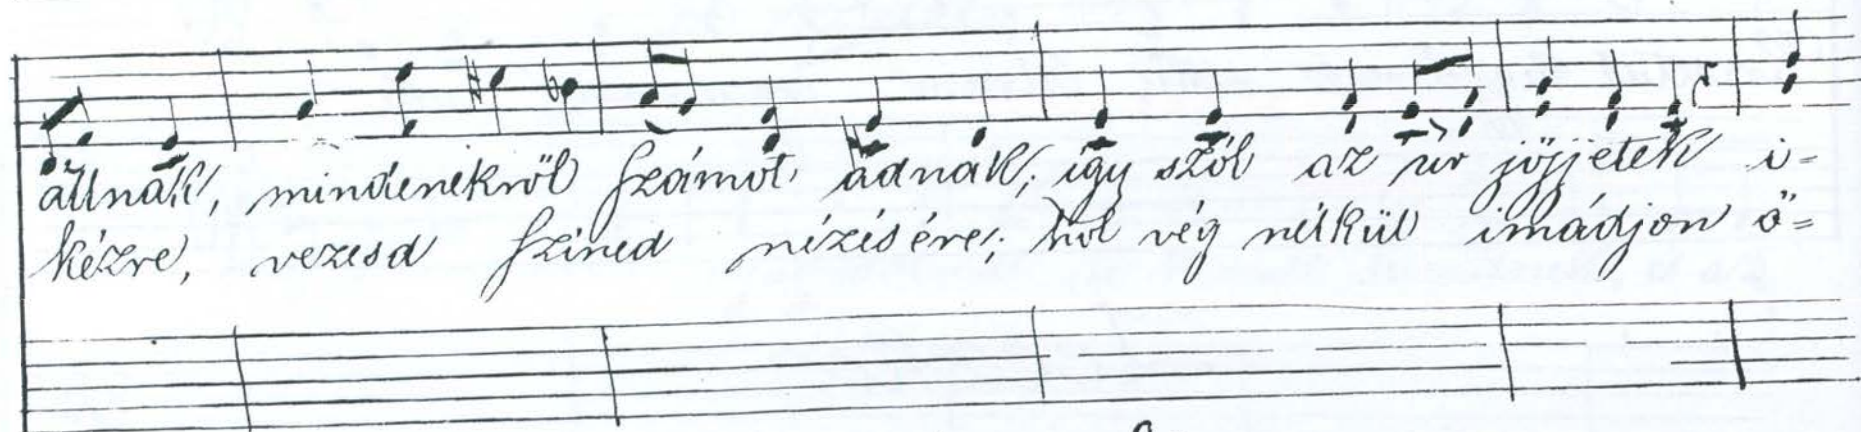 állnak, mindenekről számot adnak, így szól az úr jöjjetek i-
kézre, vezesd színed nézésére, hol vég nélkül imádjon ö=